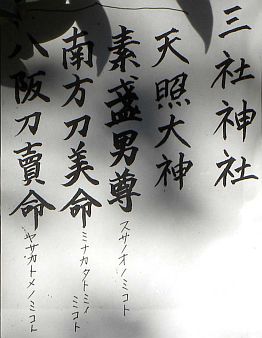 三社神社
天照大神
素盞男尊
スサノオノミコト
南方刀美命
ミナカタトミノミコト
八阪刀賣命
ヤサカトメノミコト